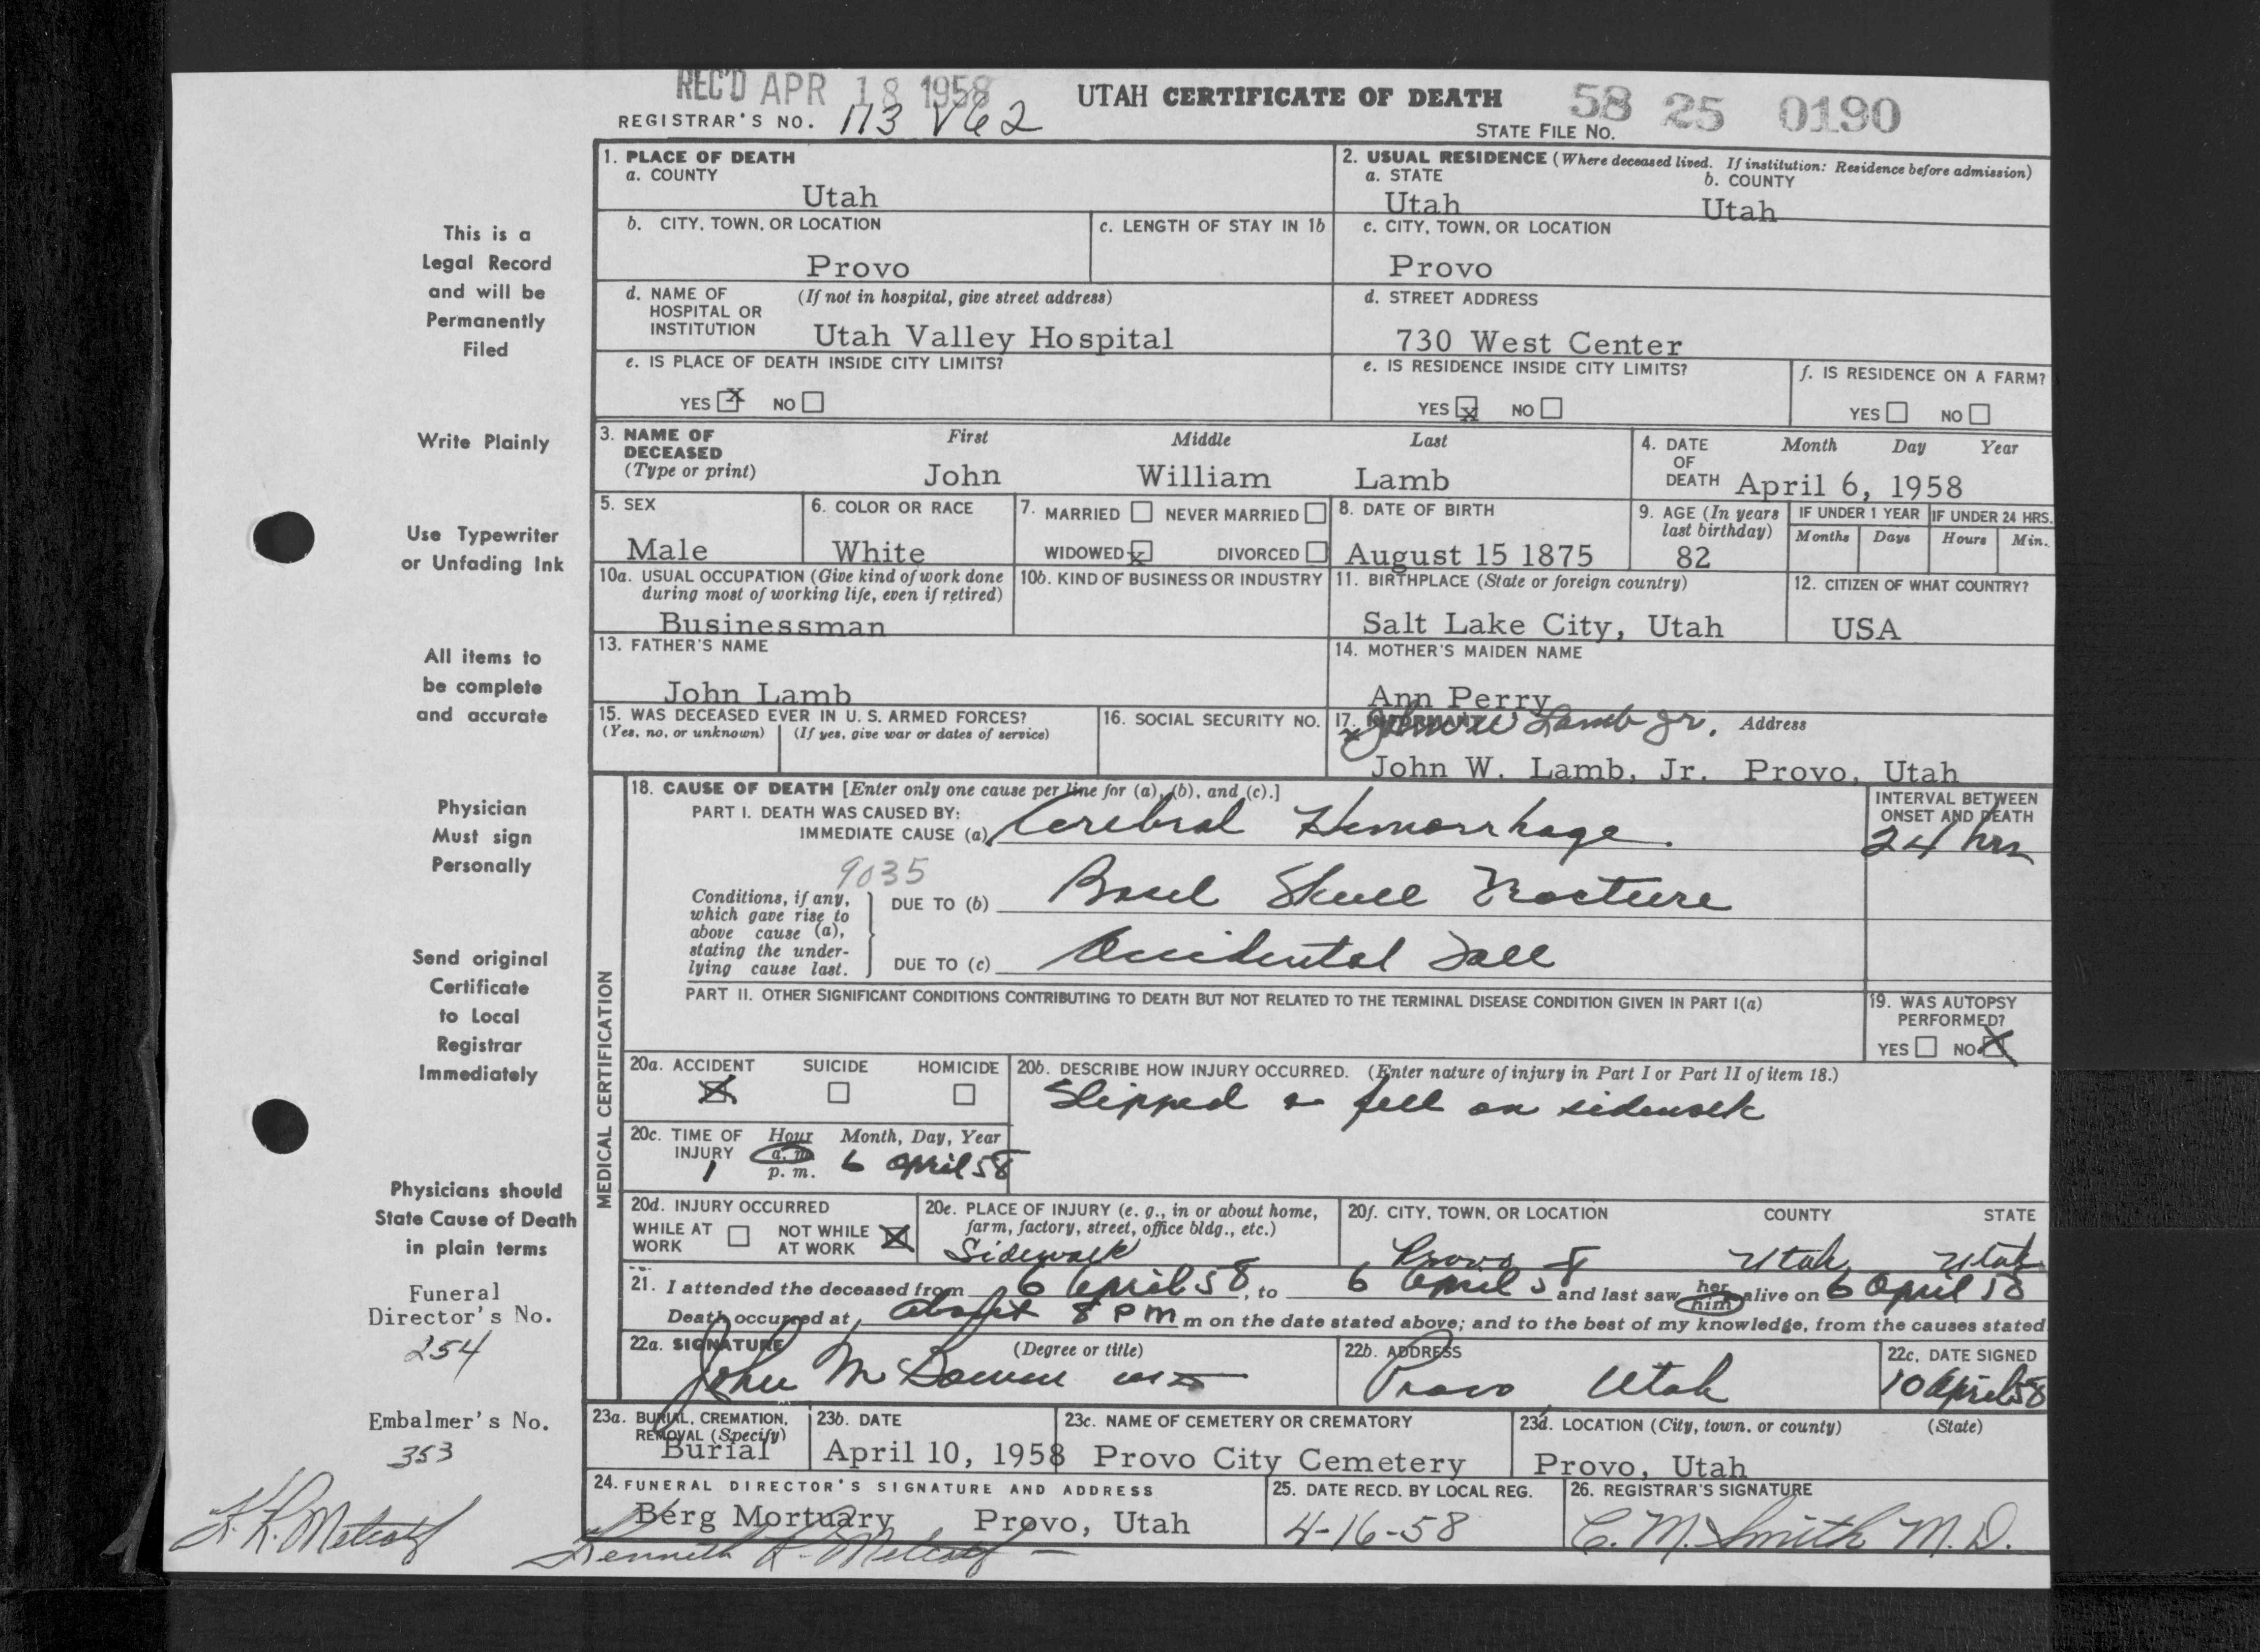 REC'D APR 18 1958
UTAH CERTIFICATE OF DEATH
REGISTRAR'S NO. 113 V62
STATE FILE NO. 58 25 0190
This is a
Legal Record
and will be
Permanently
Filed
Write Plainly
Use Typewriter
or Unfading Ink
All items to
be complete
and accurate
Physician
Must sign
Personally
Send original
Certificate
to Local
Registrar
Immediately
Physicians should
State Cause of Death
in plain terms
Funeral
Director's No.
254
Embalmer's No.
353
K. K. Metcalf
1. PLACE OF DEATH
a. COUNTY
Utah
2. USUAL RESIDENCE (Where deceased lived. If institution: Residence before admission)
a. STATE b. COUNTY
Utah Utah
b. CITY, TOWN, OR LOCATION
Provo
c. LENGTH OF STAY IN 1b
c. CITY, TOWN, OR LOCATION
Provo
d. NAME OF (If not in hospital, give street address)
HOSPITAL OR
INSTITUTION Utah Valley Hospital
d. STREET ADDRESS
730 West Center
e. IS PLACE OF DEATH INSIDE CITY LIMITS?
YES X NO
e. IS RESIDENCE INSIDE CITY LIMITS?
YES X NO
f. IS RESIDENCE ON A FARM?
YES NO
3. NAME OF First Middle Last
DECEASED
(Type or print) John William Lamb
4. DATE Month Day Year
OF
DEATH April 6, 1958
5. SEX
Male
6. COLOR OR RACE
White
7. MARRIED NEVER MARRIED
WIDOWED X DIVORCED
8. DATE OF BIRTH
August 15 1875
9. AGE (In years
last birthday)
82
IF UNDER 1 YEAR IF UNDER 24 HRS.
Months Days Hours Min.
10a. USUAL OCCUPATION (Give kind of work done
during most of working life, even if retired)
Businessman
10b. KIND OF BUSINESS OR INDUSTRY
11. BIRTHPLACE (State or foreign country)
Salt Lake City, Utah
12. CITIZEN OF WHAT COUNTRY?
USA
13. FATHER'S NAME
John Lamb
14. MOTHER'S MAIDEN NAME
Ann Perry
15. WAS DECEASED EVER IN U. S. ARMED FORCES?
(Yes, no, or unknown) (If yes, give war or dates of service)
16. SOCIAL SECURITY NO.
17. INFORMANT Address
x John W Lamb Jr.
John W. Lamb, Jr. Provo, Utah
MEDICAL CERTIFICATION
18. CAUSE OF DEATH [Enter only one cause per line for (a), (b), and (c).]
PART I. DEATH WAS CAUSED BY:
IMMEDIATE CAUSE (a) Cerebral Hemorrhage.
INTERVAL BETWEEN
ONSET AND DEATH
24 hrs
9035
Conditions, if any,
which gave rise to
above cause (a),
stating the under-
lying cause last.
DUE TO (b) Basel Skull Fracture
DUE TO (c) Accidental Fall
PART II. OTHER SIGNIFICANT CONDITIONS CONTRIBUTING TO DEATH BUT NOT RELATED TO THE TERMINAL DISEASE CONDITION GIVEN IN PART I(a)
19. WAS AUTOPSY
PERFORMED?
YES NO X
20a. ACCIDENT SUICIDE HOMICIDE
X
20b. DESCRIBE HOW INJURY OCCURRED. (Enter nature of injury in Part I or Part II of item 18.)
Slipped & fell on sidewalk
20c. TIME OF Hour Month, Day, Year
INJURY a. m.
1 p. m. 6 April 58
20d. INJURY OCCURRED
WHILE AT NOT WHILE X
WORK AT WORK
20e. PLACE OF INJURY (e. g., in or about home,
farm, factory, street, office bldg., etc.)
Sidewalk
20f. CITY, TOWN, OR LOCATION COUNTY STATE
Provo Utah Utah
21. I attended the deceased from 6 April 58, to 6 April 58 and last saw her him alive on 6 April 58
Death occurred at about 8 PM m on the date stated above; and to the best of my knowledge, from the causes stated
22a. SIGNATURE (Degree or title)
John M Bowen MD
22b. ADDRESS
Provo Utah
22c. DATE SIGNED
10 April 58
23a. BURIAL, CREMATION,
REMOVAL (Specify)
Burial
23b. DATE
April 10, 1958
23c. NAME OF CEMETERY OR CREMATORY
Provo City Cemetery
23d. LOCATION (City, town, or county) (State)
Provo, Utah
24. FUNERAL DIRECTOR'S SIGNATURE AND ADDRESS
Berg Mortuary Provo, Utah
Kenneth K. Metcalf
25. DATE RECD. BY LOCAL REG.
4-16-58
26. REGISTRAR'S SIGNATURE
C. M. Smith M. D.